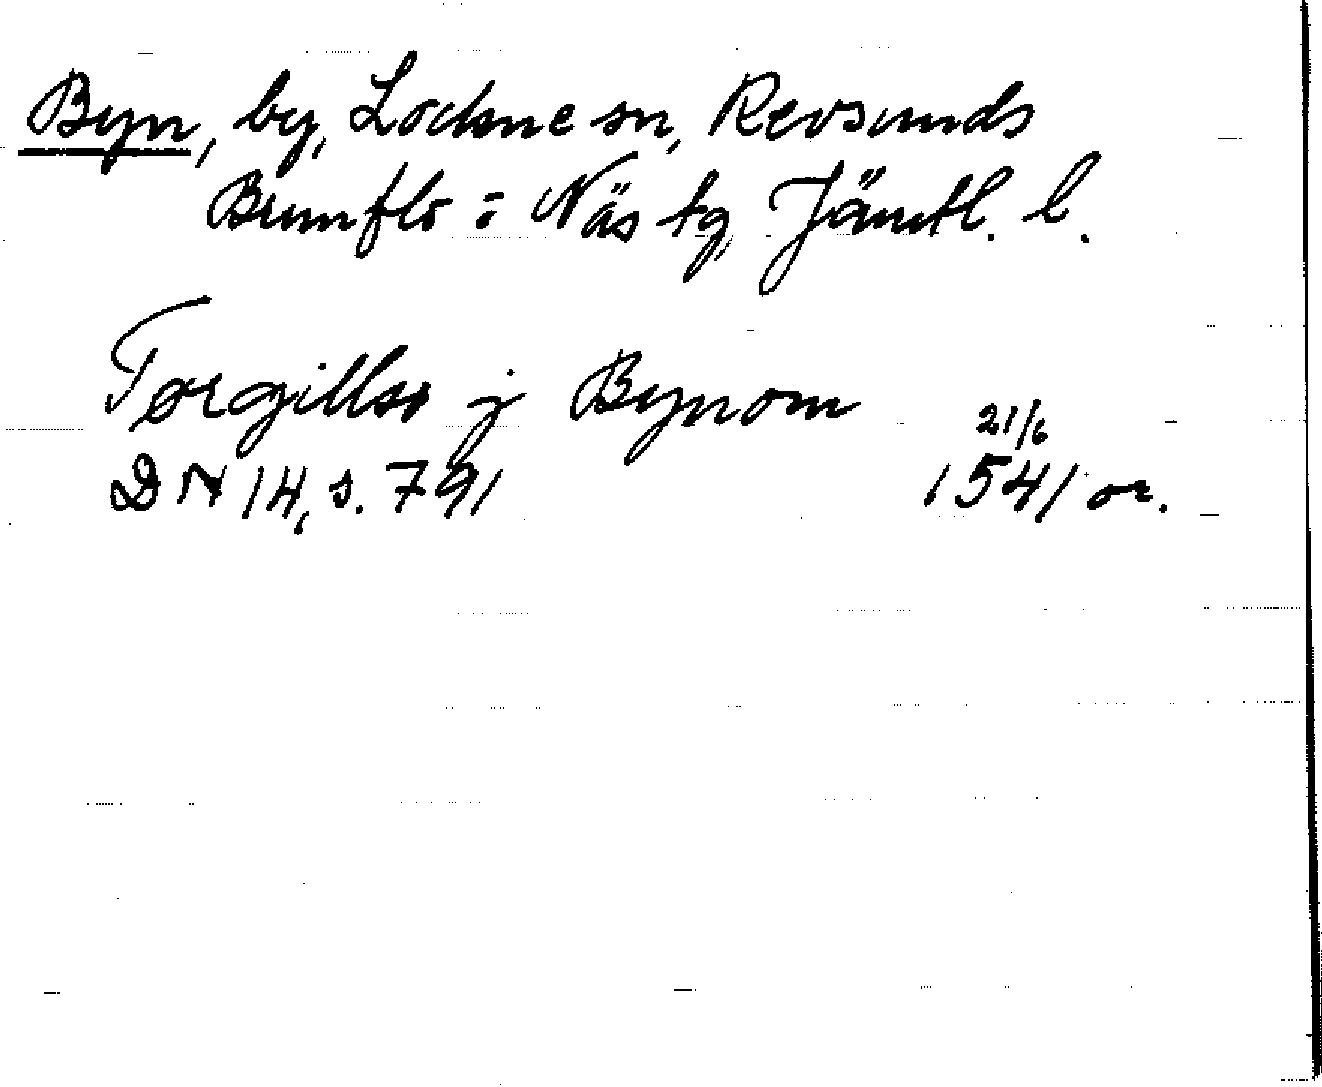 Byn, by, Lockne sn, Revsunds
Brunflo o Näs tg, Jämtl. l.
Torgills j Bynom
21/6
DN 14, s. 791 1541 or.